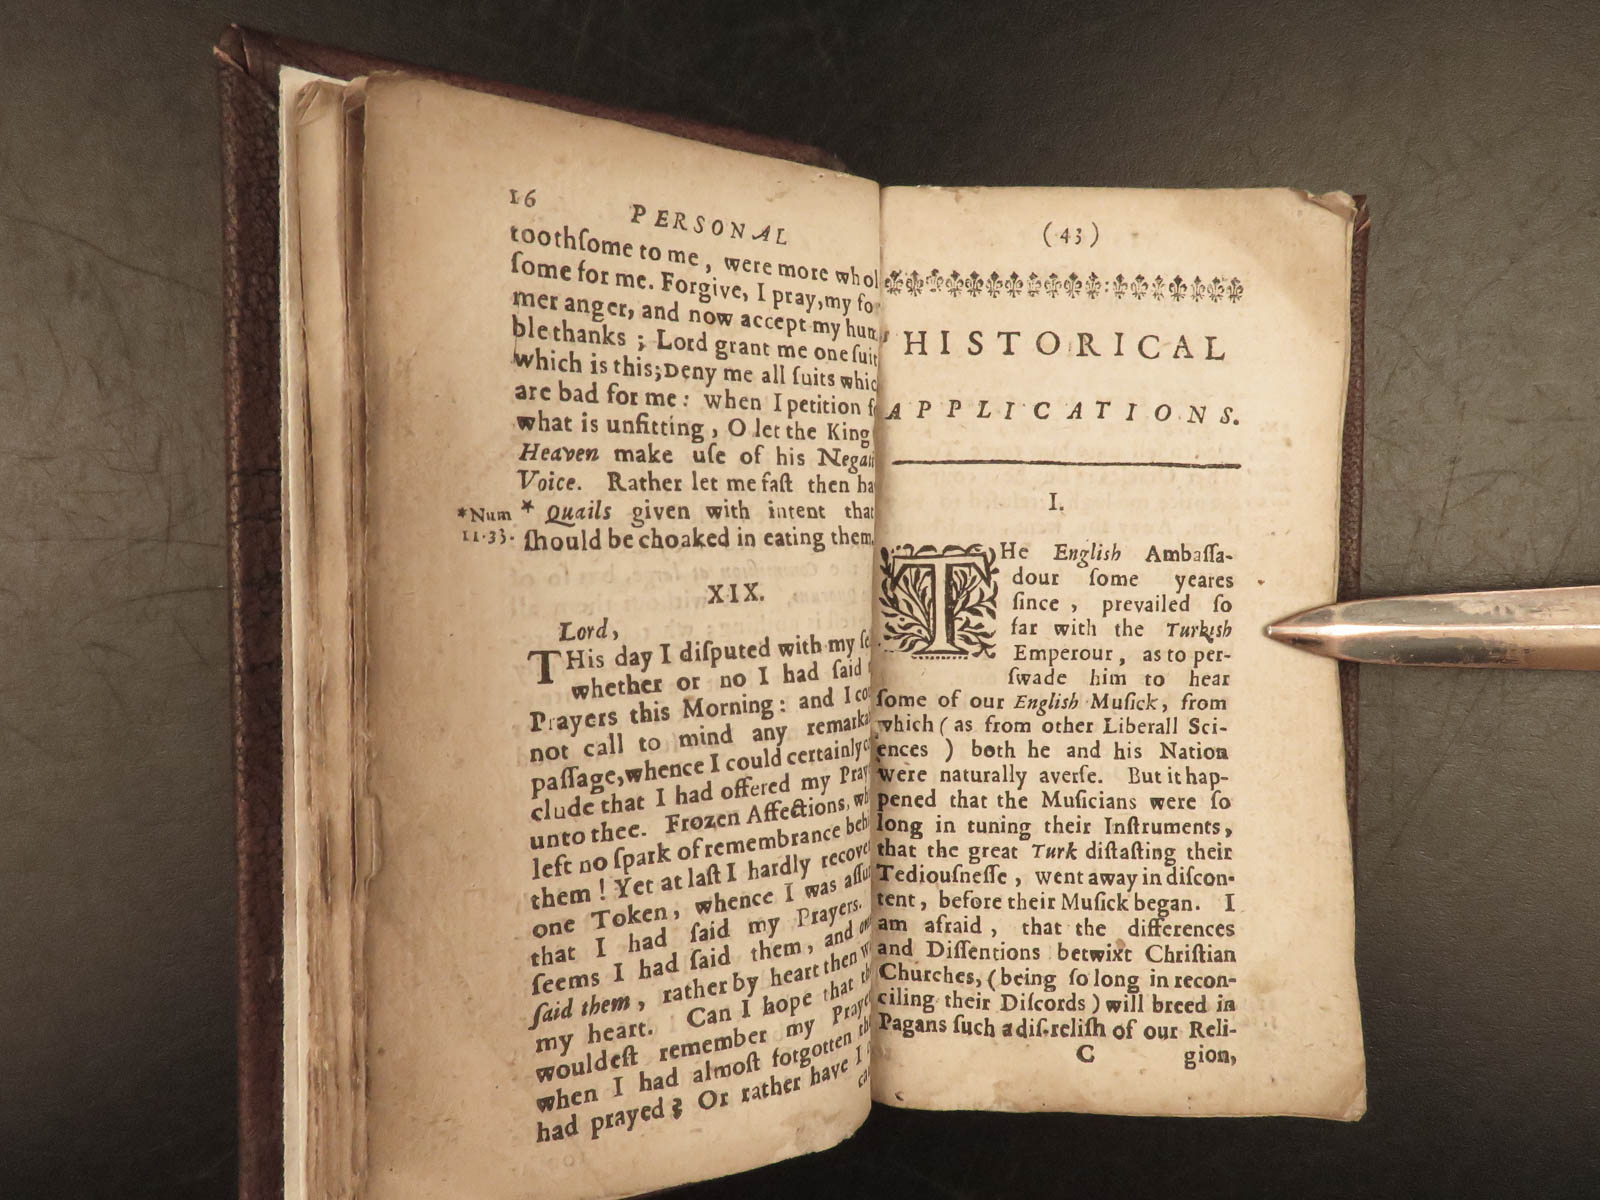 16
PERSONAL
toothſome to me, were more whol
ſome for me. Forgive, I pray, my for
mer anger, and now accept my hum
ble thanks ; Lord grant me one ſuit
which is this; Deny me all ſuits whic
are bad for me: when I petition f
what is unfitting, O let the King
Heaven make uſe of his Negati
Voice. Rather let me faſt then ha
*Num
11.33.
* Quails given with intent that
ſhould be choaked in eating them.
XIX.
Lord,
THis day I diſputed with my ſe
whether or no I had ſaid
Prayers this Morning: and I cou
not call to mind any remarka
paſſage, whence I could certainly co
clude that I had offered my Pray
unto thee. Frozen Affections, wh
left no ſpark of remembrance behi
them! Yet at laſt I hardly recove
one Token, whence I was aſſu
that I had ſaid my Prayers.
ſeems I had ſaid them, and on
ſaid them, rather by heart then w
my heart. Can I hope that th
wouldeſt remember my Praye
when I had almoſt forgotten th
had prayed? Or rather have I
ca
(43)
HISTORICAL
APPLICATIONS.
I.
THe English Ambaſſa-
dour ſome yeares
ſince, prevailed ſo
far with the Turkish
Emperour, as to per-
ſwade him to hear
ſome of our English Muſick, from
which (as from other Liberall Sci-
ences) both he and his Nation
were naturally averſe. But it hap-
pened that the Muſicians were ſo
long in tuning their Inſtruments,
that the great Turk diſtaſting their
Tediouſneſſe, went away in diſcon-
tent, before their Muſick began. I
am afraid, that the differences
and Diſſentions betwixt Chriſtian
Churches, (being ſo long in recon-
ciling their Diſcords) will breed in
Pagans ſuch a diſ-reliſh of our Reli-
C
gion,